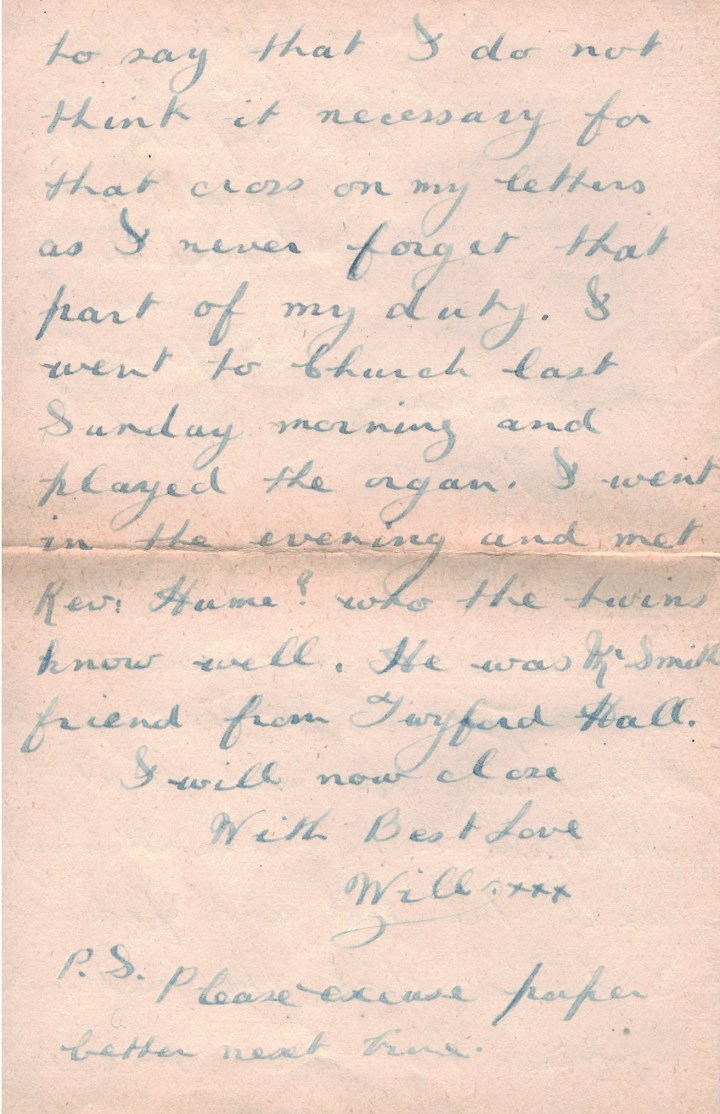 to say that I do not
think it necessary for
that cross on my letters
as I never forget that
part of my duty. I
went to Church last
Sunday morning and
played the organ. I went
in the evening and met
Rev: Hume? who the twins
know well. He was Mr Smith
friend from Twyford Hall.
I will now close
With Best Love
Will xxx
P.S. Please excuse paper
better next time.